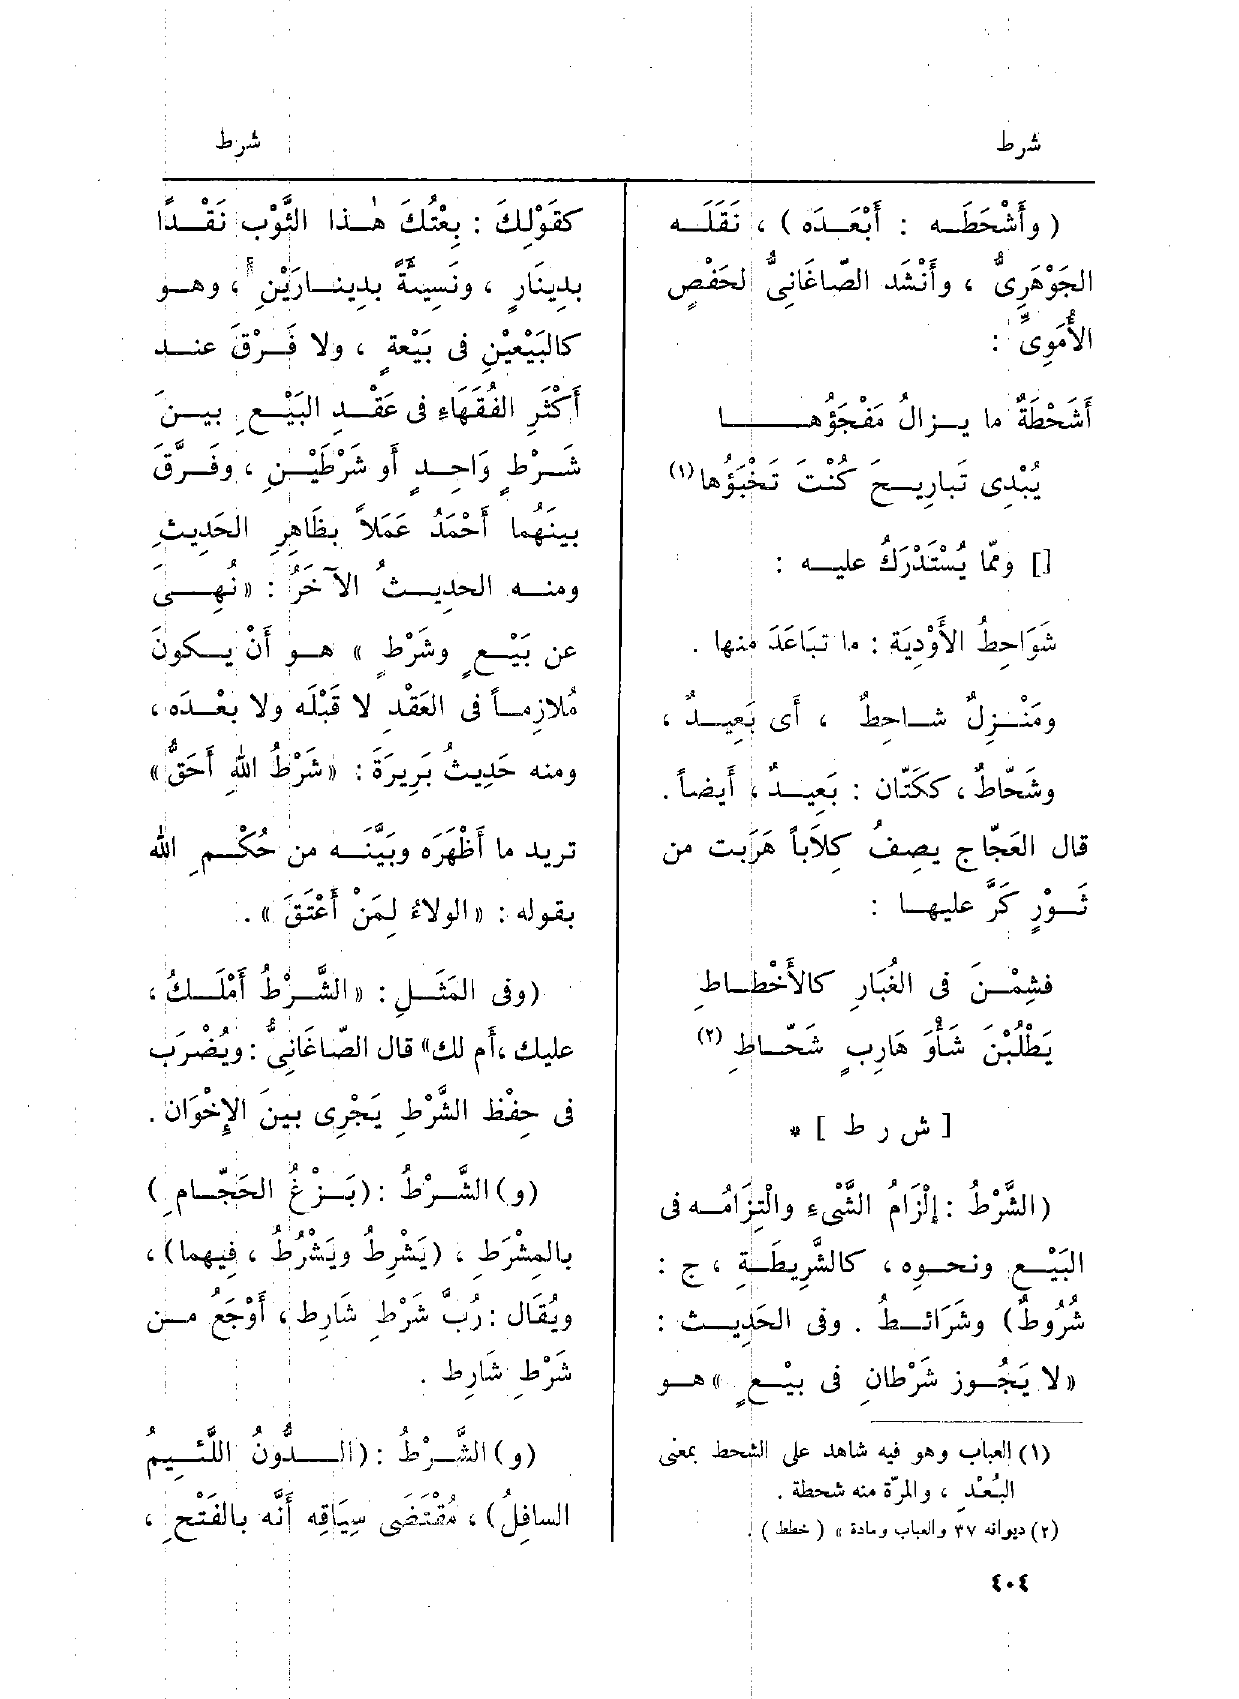 شرط
شرط
( وأَشْحَطَـه : أَبْعَـدَه ) ، نَقَلَـه
الجَوْهَرِىُّ ، وأَنْشَد الصّاغَانِىُّ لحَفْصٍ
الأُمَوِىِّ :
أَشَحْطَةٌ ما يـزالُ مَفْجَؤُهـا
يُبْدِى تَبارِيـحَ كُنْتَ تَخْبَؤُها (١)
[] وممّا يُسْتَدْرَكُ عليـه :
شَوَاحِطُ الأَوْدِيَة : ما تَبَاعَدَ منها .
ومَنْـزِلٌ شـاحِطٌ ، أَى بَعِيـدٌ ،
وشَحّاطٌ ، ككَتّان : بَعِيـدٌ ، أَيضاً .
قال العَجّاج يصِفُ كِلاَباً هَرَبت من
ثَـوْرٍ كَرَّ عليهـا :
فشِمْـنَ فى الغُبَارِ كالأَخْطَـاطِ
يَطْلُبْنَ شَأْوَ هَارِبٍ شَحّـاطِ (٢)
[ ش ر ط ] *
(الشَّرْطُ : إِلْزَامُ الشَّىْءِ والْتِزَامُـه فى
البَيْـعِ ونحـوِه ، كالشَّرِيطَـةِ ، ج :
شُرُوطٌ) وشَرَائـطُ . وفى الحَدِيـث :
« لا يَجُـوز شَرْطانِ فى بيْـعٍ » هـو
(١) العباب وهو فيه شاهد على الشحط بمعنى
البُعْـدِ ، والمرّة منه شحطة .
(٢) ديوانه ٣٧ والعباب ومادة » ( خطط ) .
كقَوْلِكَ : بِعْتُكَ هٰـذا الثَّوْب نَقْـدًا
بدِينَارٍ ، ونَسِيئَةً بدِينـارَيْنِ ، وهـو
كالبَيْعيْنِ فى بَيْعةٍ ، ولا فَـرْقَ عنـد
أَكْثَرِ الفُقَهَاءِ فى عَقْـدِ البَيْـعِ بيـنَ
شَـرْطٍ وَاحِـدٍ أَو شَرْطَيْـنِ ، وفَـرَّقَ
بينَهُما أَحْمَدُ عَمَلاً بظَاهِرِ الحَدِيثِ
ومنـه الحديـثُ الآخَرُ : « نُهِـىَ
عن بَيْـعٍ وشَرْطٍ » هـو أَنْ يـكونَ
مُلازِمـاً فى العَقْدِ لا قَبْلَه ولا بعْـدَه ،
ومنه حَدِيثُ بَرِيرَةَ : «شَرْطُ اللهِ أَحَقُّ»
تريد ما أَظْهَرَه وبَيَّنَـه من حُكْـمِ الله
بقوله : «الولاءُ لِمَنْ أَعْتَقَ » .
(وفى المَثَـلِ : «الشَّـرْطُ أَمْلَـكُ ،
عليك ،أَم لك» قال الصّاغَانِىُّ : ويُضْرَب
فى حِفْظِ الشَّرْطِ يَجْرِى بينَ الإِخْوَان .
(و) الشَّـرْطُ : (بَـزْغُ الحَجّـامِ )
بالمِشْرَطِ ، (يَشْرِطُ ويَشْرُطُ ، فيهما) ،
ويُقَال : رُبَّ شَرْطِ شَارِط ، أَوْجَعُ مـن
شَرْطِ شَارِط .
(و) الشَّـرْطُ : (الـدُّونُ اللَّئـيمُ
السافِلُ) ، مُقْتَضَى سِيَاقِه أَنَّه بالفَتْحِ ،
٤٠٤